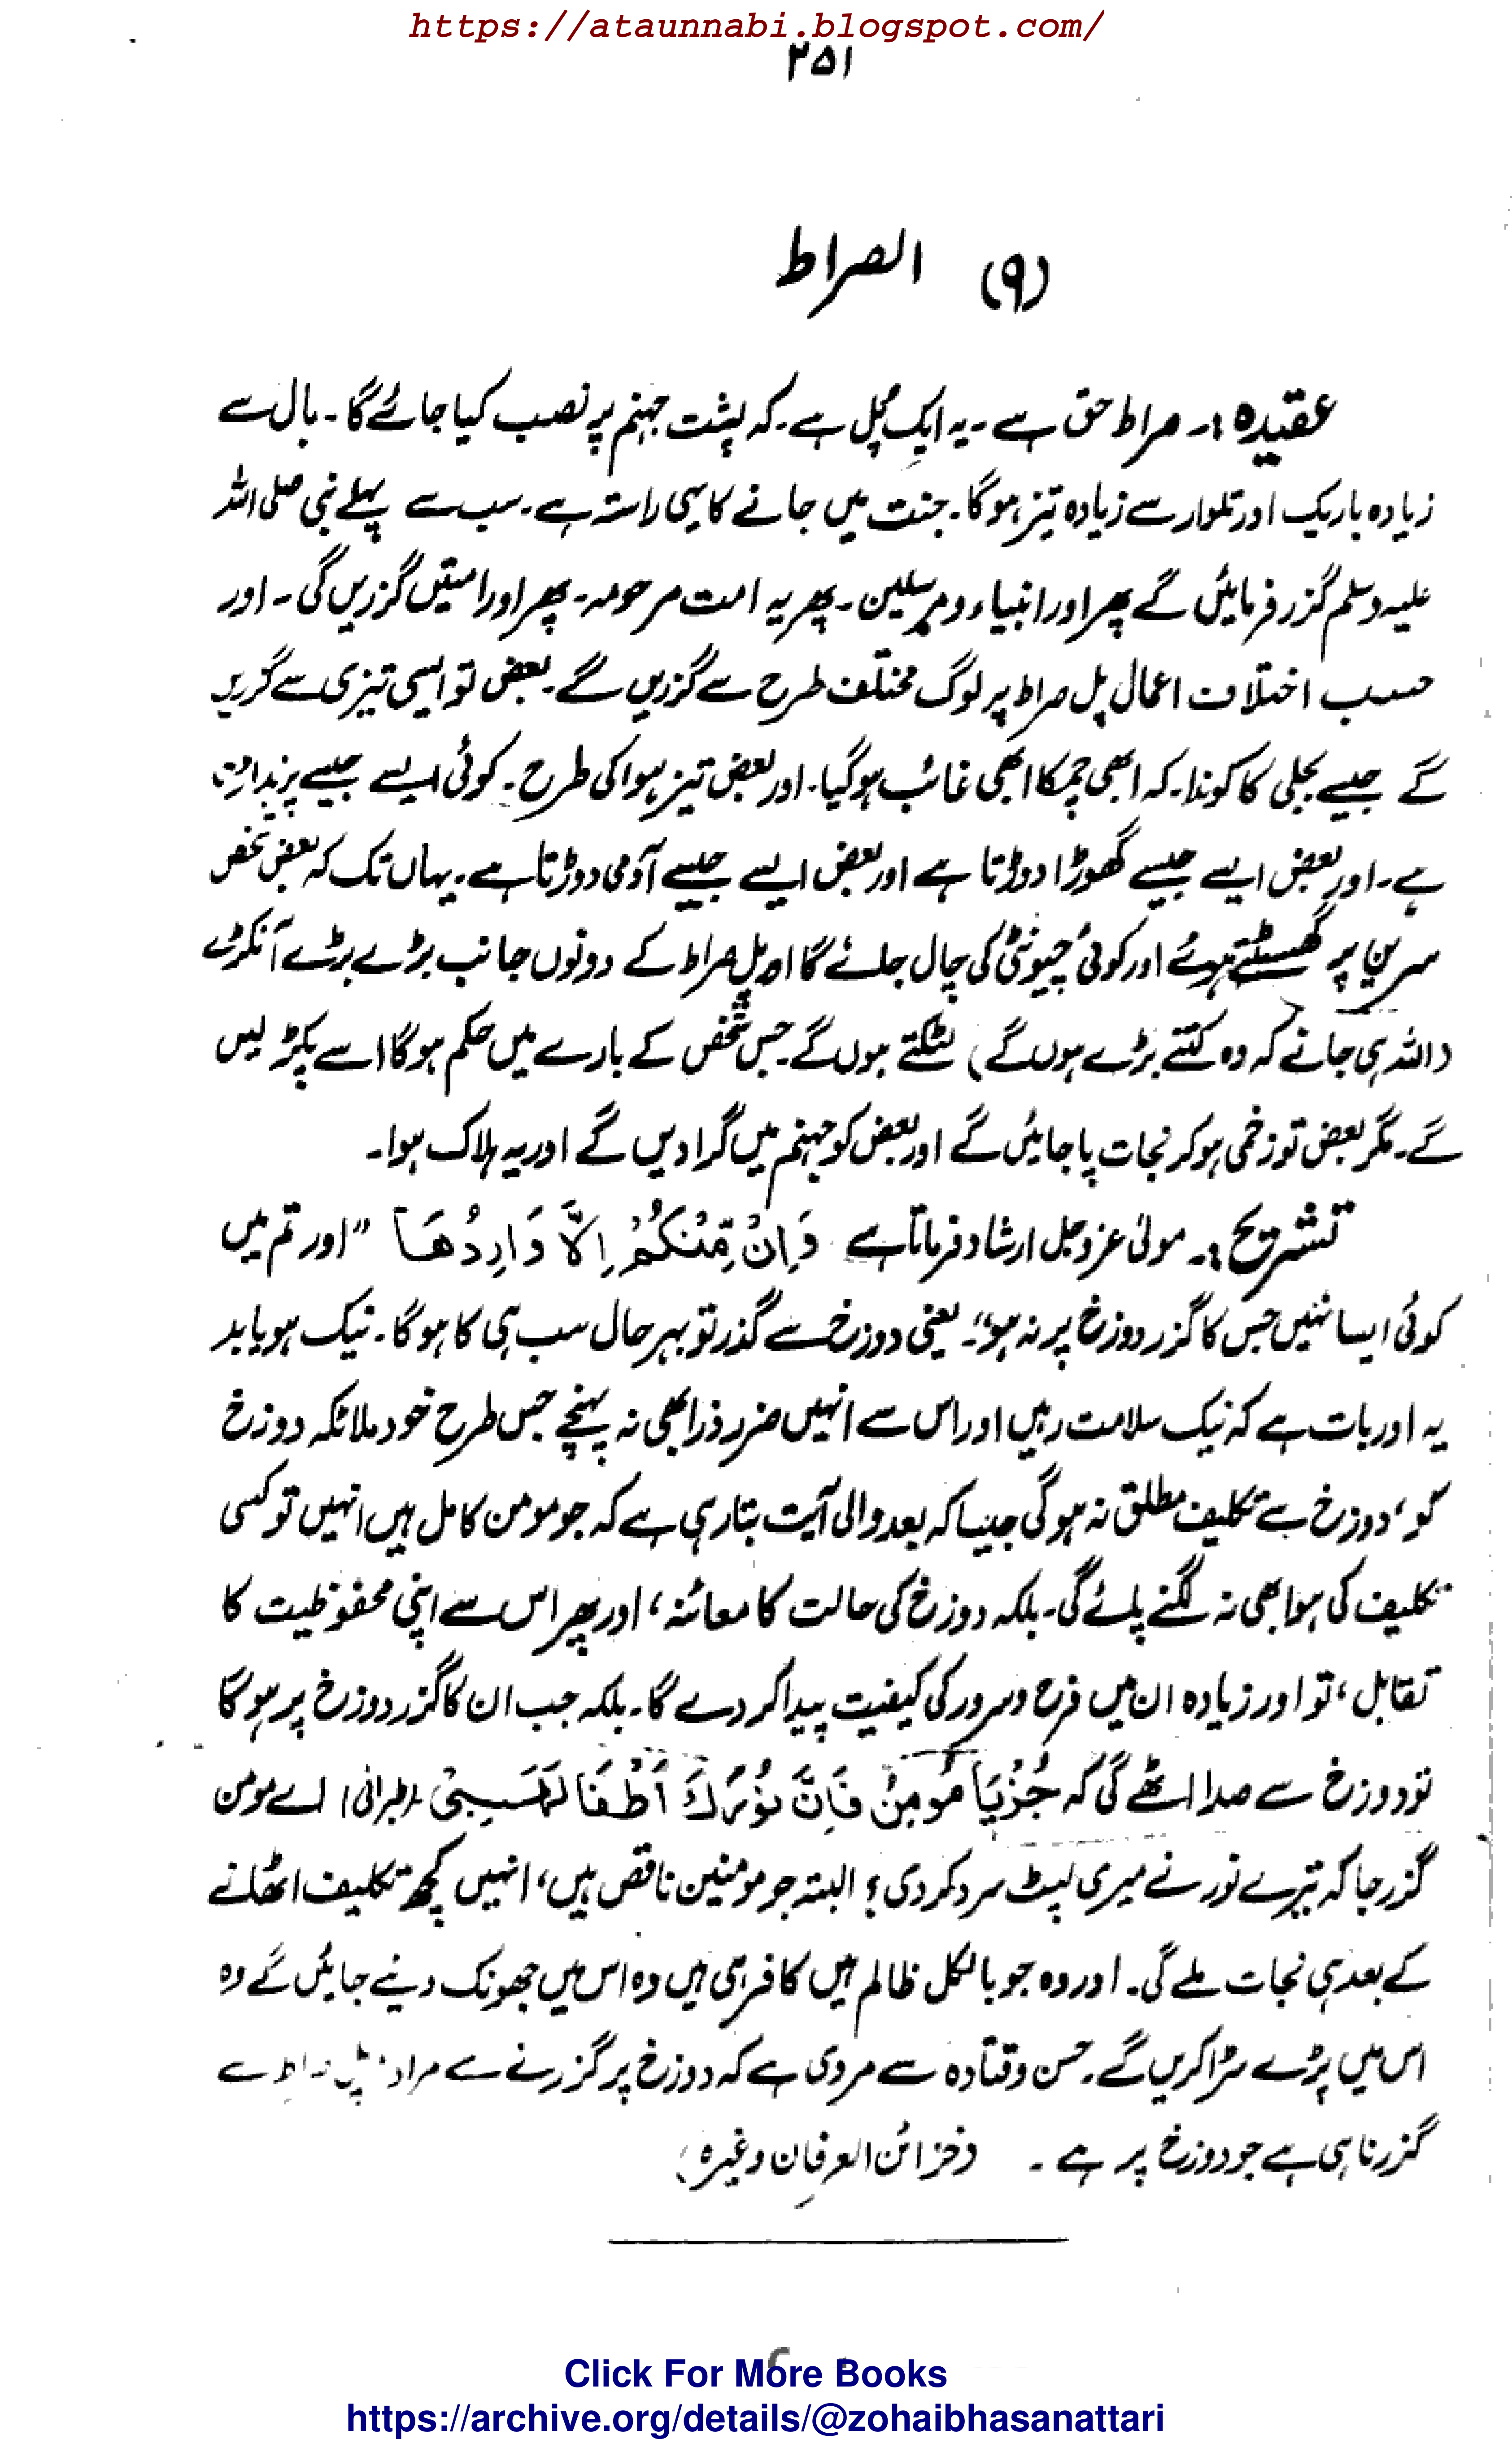 https://ataunnabi.blogspot.com/
۲۵۱
(۹) الصراط
عقیدہ :۔ صراط حق ہے ۔ یہ ایک پُل ہے ۔ کہ پشت جہنم پر نصب کیا جائے گا ۔ بال سے
زیادہ باریک اور تلوار سے زیادہ تیز ہوگا ۔ جنت میں جانے کا یہی راستہ ہے ۔ سب سے پہلے نبی صلی اللہ
علیہ وسلم گزر فرمائیں گے پھر اور انبیاء و مرسلین ۔ پھر یہ امت مرحومہ ۔ پھر اور امتیں گزریں گی ۔ اور
حسب اختلاف اعمال پل صراط پر لوگ مختلف طرح سے گزریں گے ۔ بعض تو ایسی تیزی سے گزریں
گے جیسے بجلی کا کوندا ۔ کہ ابھی چمکا ابھی غائب ہوگیا ۔ اور بعض تیز ہوا کی طرح ۔ کوئی ایسے جیسے پرند اڑتا
ہے ۔ اور بعض ایسے جیسے گھوڑا دوڑتا ہے اور بعض ایسے جیسے آدمی دوڑتا ہے ۔ یہاں تک کہ بعض شخص
سرین پر گھسٹتے ہوئے اور کوئی چیونٹی کی چال جائے گا اور پل صراط کے دونوں جانب بڑے بڑے آنکڑے
(اللہ ہی جانے کہ وہ کتنے بڑے ہوں گے) لٹکتے ہوں گے ۔ جس شخص کے بارے میں حکم ہوگا اسے پکڑ لیں
گے ۔ مگر بعض تو زخمی ہو کر نجات پا جائیں گے اور بعض کو جہنم میں گرا دیں گے اور یہ ہلاک ہوا ۔
تشریح :۔ مولیٰ عزوجل ارشاد فرماتا ہے وَاِنْ مِّنْكُمْ اِلَّا وَارِدُهَا " اور تم میں
کوئی ایسا نہیں جس کا گزر دوزخ پر نہ ہو" ۔ یعنی دوزخ سے گذر تو بہر حال سب ہی کا ہوگا ۔ نیک ہو یا بد
یہ اور بات ہے کہ نیک سلامت رہیں اور اس سے انہیں ضرر ذرا بھی نہ پہنچے جس طرح خود ملائکہ دوزخ
کو ، دوزخ سے تکلیف مطلق نہ ہوگی جیسا کہ بعد والی آیت بتا رہی ہے کہ جو مومن کامل ہیں انہیں تو کسی
تکلیف کی ہوا بھی نہ لگنے پائے گی ۔ بلکہ دوزخ کی حالت کا معائنہ ، اور پھر اس سے اپنی محفوظیت کا
تقابل ، تو اور زیادہ ان میں فرح و سرور کی کیفیت پیدا کر دے گا ۔ بلکہ جب ان کا گزر دوزخ پر ہوگا
تو دوزخ سے صدا اٹھے گی کہ جُزْيَا مُؤْمِنُ فَاِنَّ نُوْرَكَ اَطْفَا لَهَبِیْ ۔ (طبرانی) اے مومن
گزر جا کہ تیرے نور نے میری لپٹ سرد کر دی ؛ البتہ جو مومنین ناقص ہیں ، انہیں کچھ تکلیف اٹھانے
کے بعد ہی نجات ملے گی ۔ اور وہ جو بالکل ظالم ہیں کافر ہی ہیں وہ اس میں جھونک دیئے جائیں گے وہ
اس میں پڑے سڑا کریں گے ۔ حسن و قتادہ سے مروی ہے کہ دوزخ پر گزرنے سے مراد پل صراط سے
گزرنا ہی ہے جو دوزخ پر ہے ۔ (خزائن العرفان وغیرہ)
Click For More Books
https://archive.org/details/@zohaibhasanattari